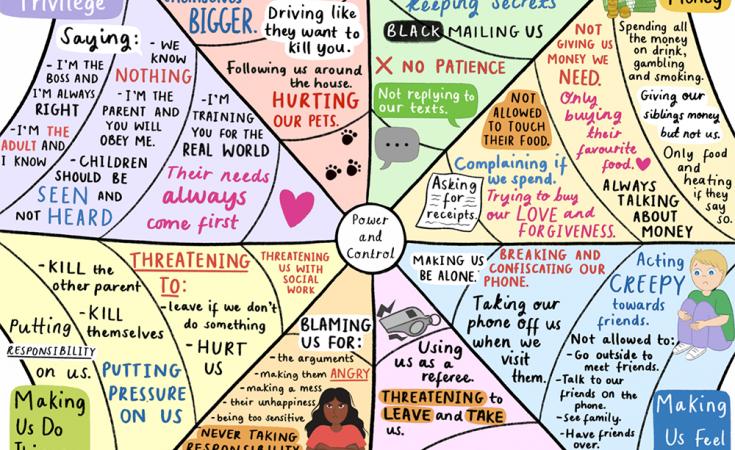 Privilege
Saying:
- I'M THE
BOSS AND
I'M ALWAYS
RIGHT
- I'M THE
ADULT AND
I KNOW
- WE
KNOW
NOTHING
- I'M THE
PARENT AND
YOU WILL
OBEY ME.
- CHILDREN
SHOULD BE
SEEN AND
NOT HEARD
- I'M
TRAINING
YOU FOR THE
REAL WORLD
Their needs
always
come first
BIGGER.
Driving like
they want to
kill you.
Following us around
the house.
HURTING
OUR PETS.
Keeping Secrets
BLACK MAILING US
NO PATIENCE
Not replying to
our texts.
Money
Spending all
the money
on drink,
gambling
and smoking.
Giving our
siblings money
but not us.
Only food
and
heating
if they
say
so.
NOT
GIVING US
MONEY WE
NEED.
Only
buying
their
favourite
food.
ALWAYS
TALKING
ABOUT
MONEY
NOT
ALLOWED
TO TOUCH
THEIR FOOD.
Complaining if
we spend.
Asking
for
receipts.
Trying to buy
our LOVE and
FORGIVENESS.
Power
and
Control
- KILL the
other parent
- KILL
themselves
Putting
RESPONSIBILITY
on us.
PUTTING
PRESSURE
ON US
Making
Us Do
THREATENING
TO:
- leave if we don't
do something
- HURT
US
THREATENING
US WITH
SOCIAL
WORK
BLAMING
US FOR:
- the arguments
- making them ANGRY
- making a mess
- their unhappiness
- being too sensitive
NEVER TAKING
RESPONSIBILITY
Using
us as a
referee.
THREATENING to
LEAVE and TAKE
us.
MAKING US
BE ALONE.
BREAKING AND
CONFISCATING OUR
PHONE.
Taking our
phone off us
when we
visit
them.
Acting
CREEPY
towards
friends.
Not allowed to:
- Go outside to
meet friends.
- Talk to our
friends on the
phone.
- See family.
- Have friends
over.
Making
Us Feel